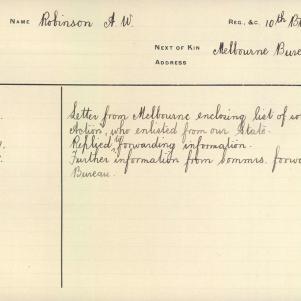 NAME Robinson A W. REG., &C. 10th B
NEXT OF KIN Melbourne Bure
ADDRESS
Letter from Melbourne enclosing list of
Action, who enlisted from our State.
Replied forwarding information.
Further information from Commrs. forwa
Bureau.